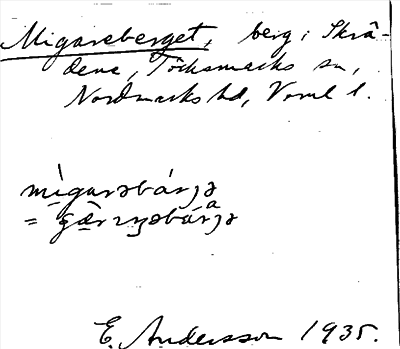 Migareberget, berg i Skrä-
dene, Töcksmarks sn,
Nordmarks hd, Vrml l.
mìgarəbár̨ə
= gæ̀r
E. Andersson 1935.